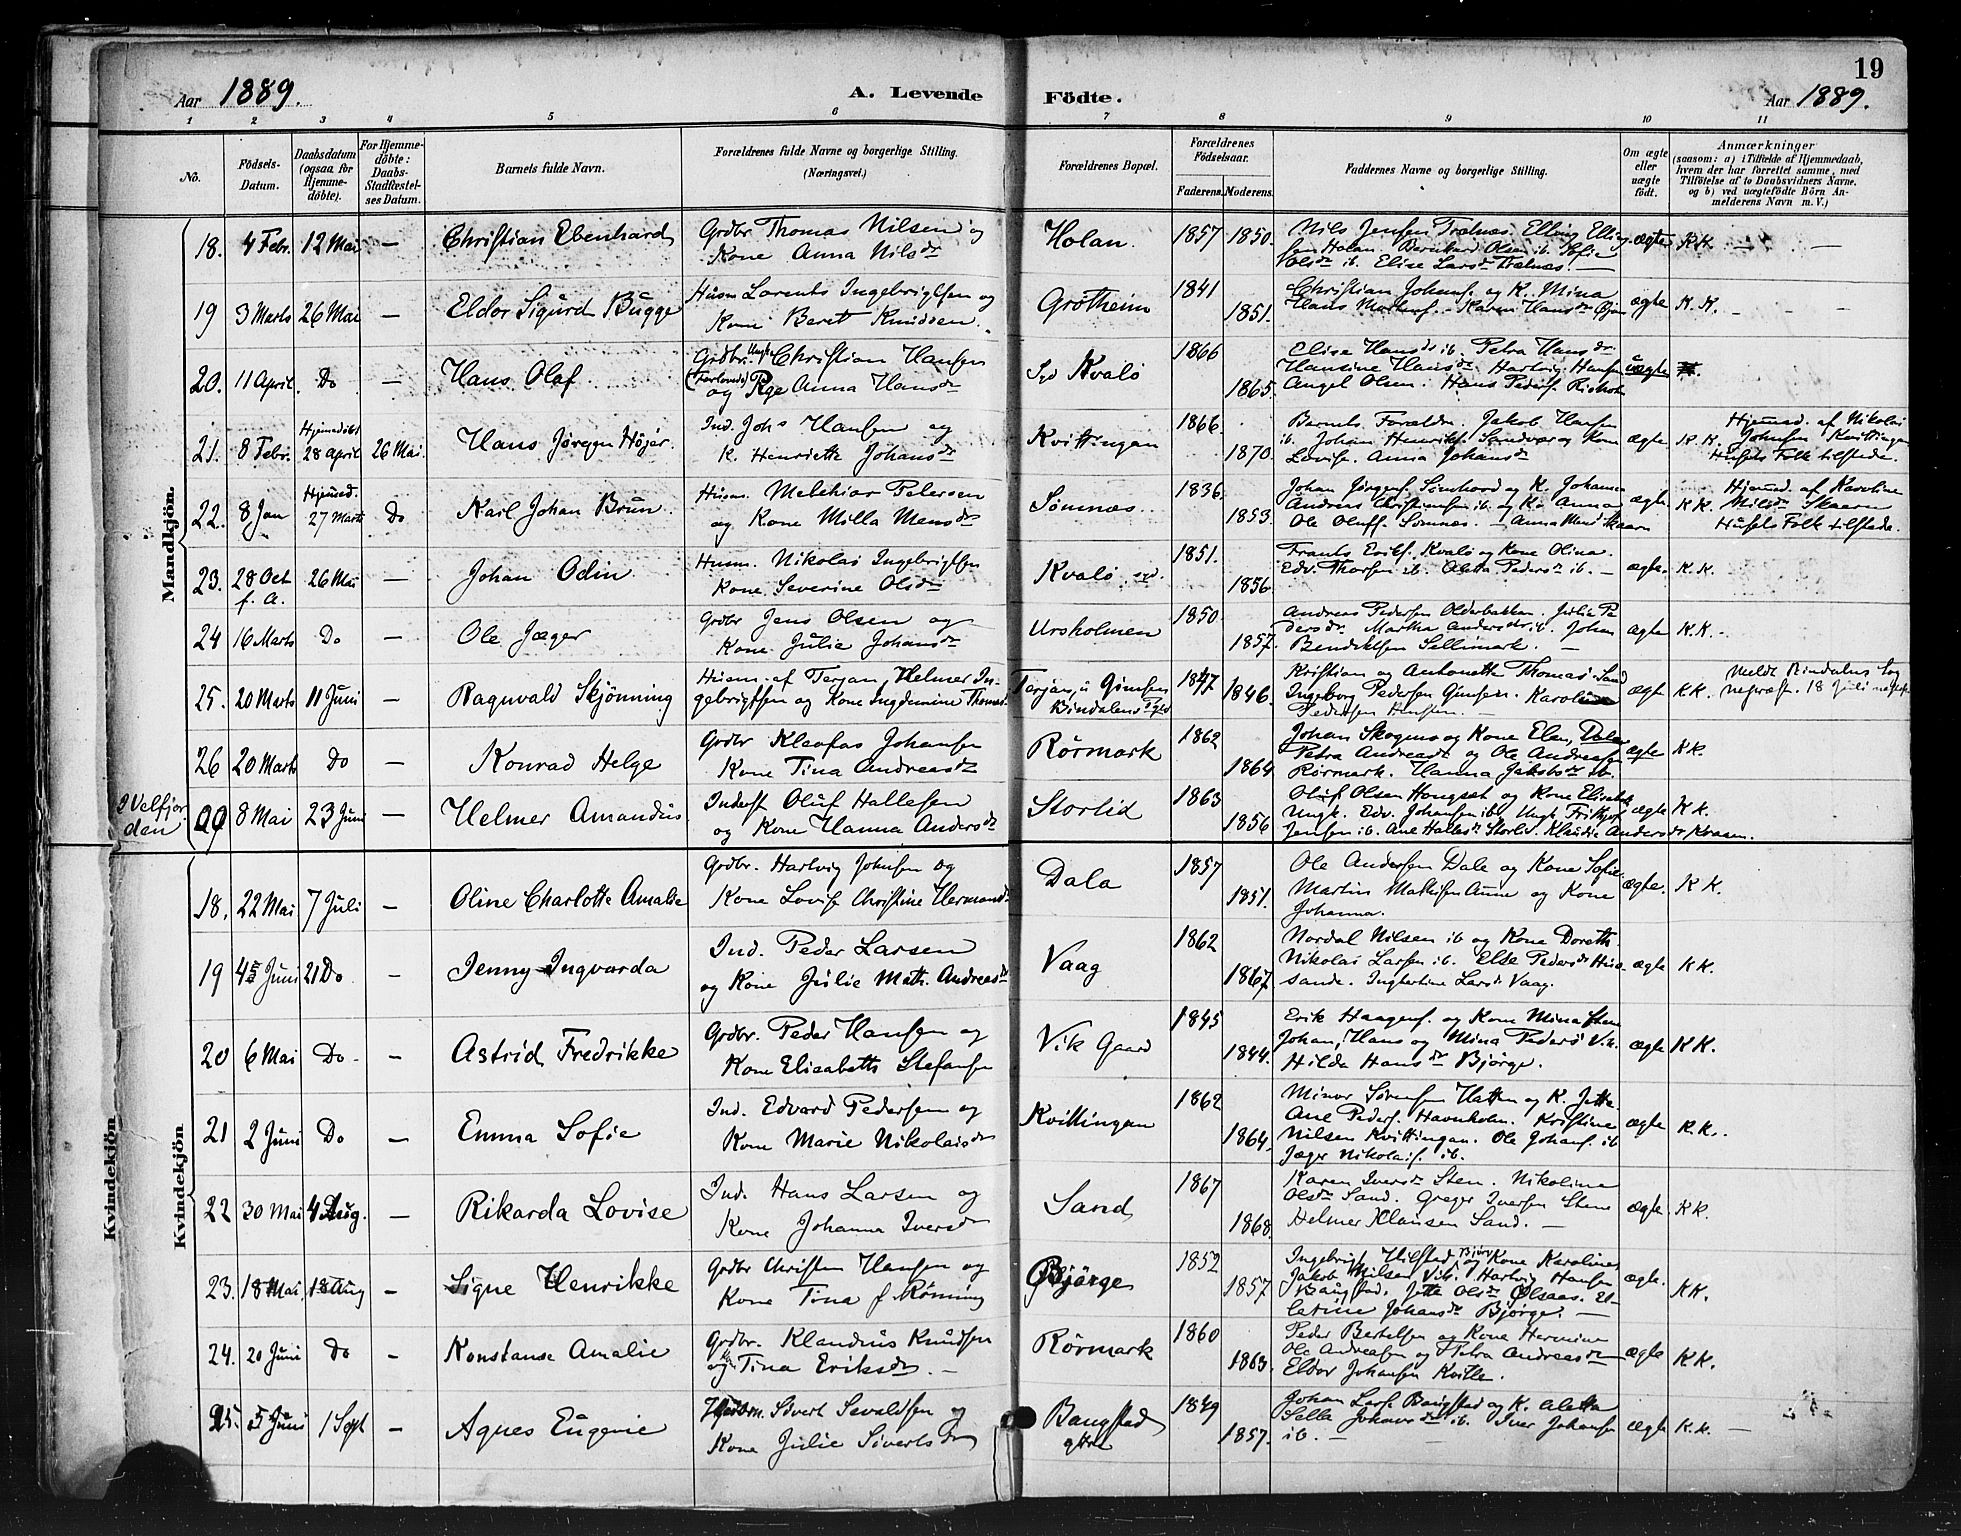 19
Aar 1889. A. Levende Födte. Aar 1889.
1 2 3 4 5 6 7 8 9 10 11
No.
Födsels-
Datum.
Daabsdatum
(ogsaa for
Hjemme-
döbte).
For Hjemme-
döbte:
Daabs-
Stadfæstel-
ses Datum.
Barnets fulde Navn.
Forældrenes fulde Navne og borgerlige Stilling.
(Næringsvei.)
Forældrenes Bopæl.
Forældrenes
Födselsaar.
Faderens. Moderens.
Faddernes Navne og borgerlige Stilling.
Om ægte
eller
uægte
födt.
Anmærkninger
(saasom: a) i Tilfælde af Hjemmedaab,
hvem der har forrettet samme, med
Tilföielse af to Daabsvidners Navne,
og b) ved uægtefödte Börn An-
melderens Navn m. V.)
Mandkjön.
18. 4 Febr. 12 Mai — Christian Ebenhard
Grdbr Thomas Nilsen og
Kone Anna Nilsdr
Holan. 1857 1850.
Nils Jensen Trælnes. Elling Elling
sen Holan. Bernhard Olsen ib. Sofie
Olsdr ib. Elise Larsdr Trælnes. —
ægte K.K. — —
19 3 Marts 26 Mai — Eldor Sigurd Bugge
Husm Lorents Ingebrigtsen og
Kone Berett Knudsen.
Grøtheim 1841 1851.
Christian Johans. og K. Mina
Hans Mathis. Karen Hansdr
ægte K.K. — — —
20. 11 April. Do — Hans Olaf
Grdbr. Ungk Christian Hansen
(Forlovede) og Pge Anna Hansdr
Syd Kvalø 1866 1865.
Elise Hansdr ib. Petra Hansdr
Hansine Hansdr Hartvig Hansen
Angel Olsen. Hans Peders.
uægte
21. 8 Febr. Hjemmedøbt
28 April 26 Mai. Hans Jørgen Højer.
Ind. Johs Hansen og
K. Henriette Johansdr
Kvittingan 1866. 1870.
Barnets Forældre Jakob Hansen
ib. Johan Henriks. Sandvær og Kone
Lovise. Anna Johansdr
ægte K.K.
Hjemmed. af Nikolai
Johnsen Kvittingan
Husets Folk tilstede.
22. 8 Jan Hjemmed.
27 Marts Do Karl Johan Brun
Husm. Melchior Petersen
og Kone Milla Monsdr
Sømnæs. 1836. 1853.
Johan Jørgens. Sømhovd og K. Johanna
Andreas Christiansen ib. og K. Anna
Ole Oluff. Sømnæs. — Anna Skaaren
ægte K.K.
Hjemmed. af Karoline
Nilsdr Skaaren
Husets Folk tilstede.
23. 28 Oct
f. A. 26 Mai — Johan Odin
Husm. Nikolai Ingebrigtsen
Kone. Severine Olsdr
Kvalø syd. 1851. 1856
Frants Eriks. Kvalø og Kone Olina.
Edv. Thorsen ib. Aletta Pedersdr ib. —
ægte. K.K.
24 16 Marts Do — Ole Jæger
Grdbr Jens Olsen og
Kone. Julia Johansdr
Ursholmen 1850. 1857.
Andreas Pedersen Olderbakken. Julia Pe
dersdr. Martha Andersdr ib. Johan
Bendiktsen Sellimark. —
ægte K.K.
25. 20 Marts 11 Juni — Ragnvald Skjønning
Husm. af Terjan, Helmer In-
gebrigtsen og Kone Ingdemine Thomasdr
Terjan, i
Bindalens Sgld 1847 1846.
Kristian og Antonette Thomas. Sand
Ingeborg Pedersen Karoline
Pedersen —
ægte K.K.
Meldt Bindalens Sog
nepræst. 18 Juli
26 20 Marts Do — Konrad Helge
Grdbr Kleofas Johansen
Kone Tina Andreasdr
Rørmark 1862 1864
Johan Skogmo og Kone Elen, Dale
Petra Andreasdr og Ole Andreasen
Rørmark. Hanna Jakobsdr ib.
ægte KK.
I Velfjor
den
8 Mai 23 Juni — Helmer Amandus
Inderst Oluf Hallesen
og Kone Hanna Andersdr
Storlid 1863 1856
Oluf Olsen Hongset og Kone Elisabeth
Ungk. Edv. Johansen ib. Ungk Fridtjof
Jensen ib. Ane Hallesdr Storlid. Klaudia Andersdr
ægte K K.
Kvindekjön
Kvindekjön
18. 22 Mai 7 Juli — Oline Charlotte Amalie
Grdbr. Hartvig Johnsen og
Kone Lovise Christine Hermansdr
Dala 1857 1851.
Ole Andersen Dale og Kone Sofie.
Martin Mathisen Aune og Kone
Johanna.
ægte. K K.
19 Juni 21 Do — Jenny Ingvarda
Ind. Peder Larsen
og Kone Julie Math. Andreasdr
Vaag 1862 1867.
Nordal Nilsen ib og Kone Doreth.
Nikolai Larsen ib. Else Pedersdr Hus
sande. Ingbertine Larsdr Vaag.
ægte KK.
20 6 Mai Do — Astrid Fredrikke
Grdbr. Peder Hansen og
Kone Elisabeth Stefansen
Vik Gaard 1845 1844.
Erik Haagens. og Kone Mina Stene
Johan, Hans og Mina Peders. Vik.
Hilda Hansdr Bjørge.
ægte KK.
21 2 Juni Do — Emma Sofie
Ind. Edvard Pedersen og
Kone Marie Nikolaisdr
Kvittingan 1862 1864.
Minor Sørensen Hatten og K. Jette.
Ane Peders. Havnholm. Kristine
Nilsen Kvittingan. Ole Johans. ib
Jæger Nikolais. ib.
ægte K.K.
22 30 Mai 4 Aug. — Rikarda Lovise
Ind. Hans Larsen og
Kone Johanna Iversdr
Sand 1867 1868.
Karen Iversdr Sten. Nikoline
Olsdr Sand. Greger Iversen Stene
Helmer Klausen Sand. —
ægte. KK.
23. 18 Mai. 18 Aug — Signe Henrikke
Grdbr Christen Hansen og
Kone Tina f. Rønning
Bjørge 1852 1857
Ingebrigt Hilstad Bjørg Kone Karoline
Jakob Nilsen Vik. Hartvig Hansen
Bangstad. Jette Olsdr Olsaas. El-
latine Johansdr Bjørge. —
ægte. KK.
24. 20 Juni Do — Konstanse Amalie
Grdbr. Klaudius Knudsen
og Kone Tina Eriksdr —
Rørmark 1860 1863.
Peder Bertelsen og Kone Hermine
Ole Andreasen og Petra Andreasdr
Eldor Johansen Kvitle.
ægte KK.
25. 5 Juni 1 Sept — Agnes Eugenie
Husm. Sivert Sevaldsen og
Kone Julie Sivertsdr
Bangstad 1849 1857.
Johan Lars. Bangstad og K. Aletta
Sella Johansdr ib. Iver Johansen
ib. —
ægte K.K. —